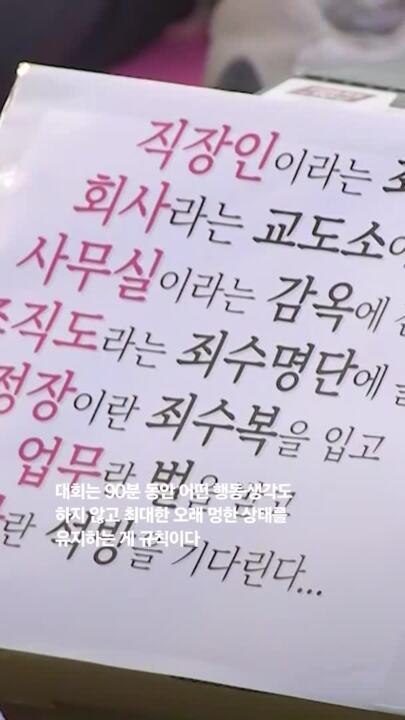 직장인이라는
회사라는 교도소에
사무실이라는 감옥에
조직도라는 죄수명단에
정장이란 죄수복을 입고
업무란 벌을
란 석방을 기다린다...
대회는 90분 동안 어떤 행동·생각도
하지 않고 최대한 오래 멍한 상태를
유지하는 게 규칙이다